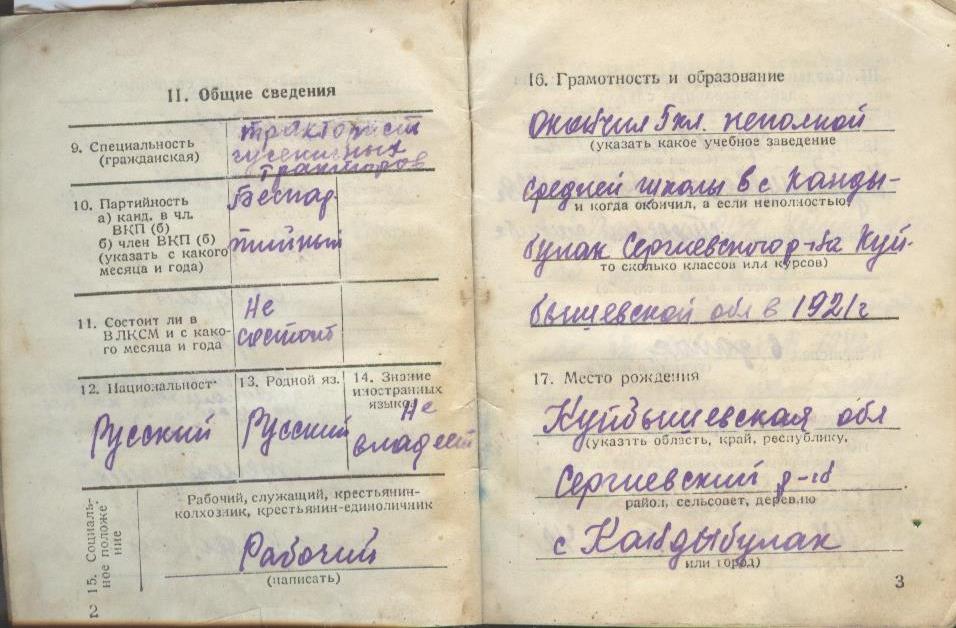 II. Общие сведения
9. Специальность
(гражданская)
тракторист
гусеничных
тракторов
10. Партийность
а) канд. в чл.
ВКП (б)
б) член ВКП (б)
(указать с какого
месяца и года)
Беспар
тийный
11. Состоит ли в
ВЛКСМ и с како-
го месяца и года
Не
состоит
12. Национальност
Русский
13. Родной яз.
Русский
14. Знание
иностранных
языков
Не
владеет
15. Социаль-
ное положе-
ние
Рабочий, служащий, крестьянин-
колхозник, крестьянин-единоличник
Рабочий
(написать)
2
16. Грамотность и образование
Окончил 5 кл. неполной
(указать какое учебное заведение
средней школы в с Канды-
и когда окончил, а если неполностью
булак Сергиевского р-на Куй-
то сколько классов или курсов)
бышевской обл в 1921 г
17. Место рождения
Куйбышевская обл
(указать область, край, республику,
Сергиевский р-н
район, сельсовет, деревню
с Кандыбулак
или город)
3